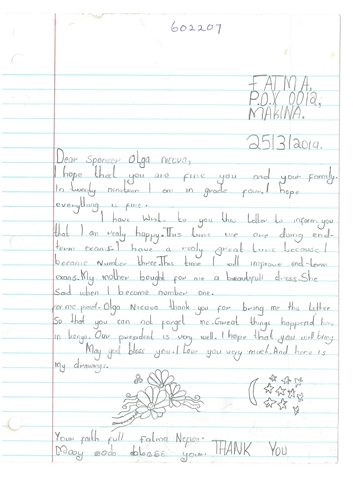 602207
FATMA,
P.O.X 0012,
MAKINA.
25|3|2019.
Dear Sponcer Olga Nicova,
I hope that you are fine you and your family.
In twenty nineteen I am in grade four. I hope
everything is fine.
I have writ to you this letter to inform you
that I am realy happy. This time we are doing end-
term exams. I have a realy great time because I
became number three. This time I will improve end-term
exams. My mother bought for me a beautyfull dress. She
said when I become number one.
for me Olga Nicova thank you for bring me this letter
So that you can not forget me. Great things happend here
in kenya. Our is very well. I hope that you will bring
May god bless you. I love you very much. And here is
my drawings.
Your faith full Fatma
May god bless you. THANK YOU